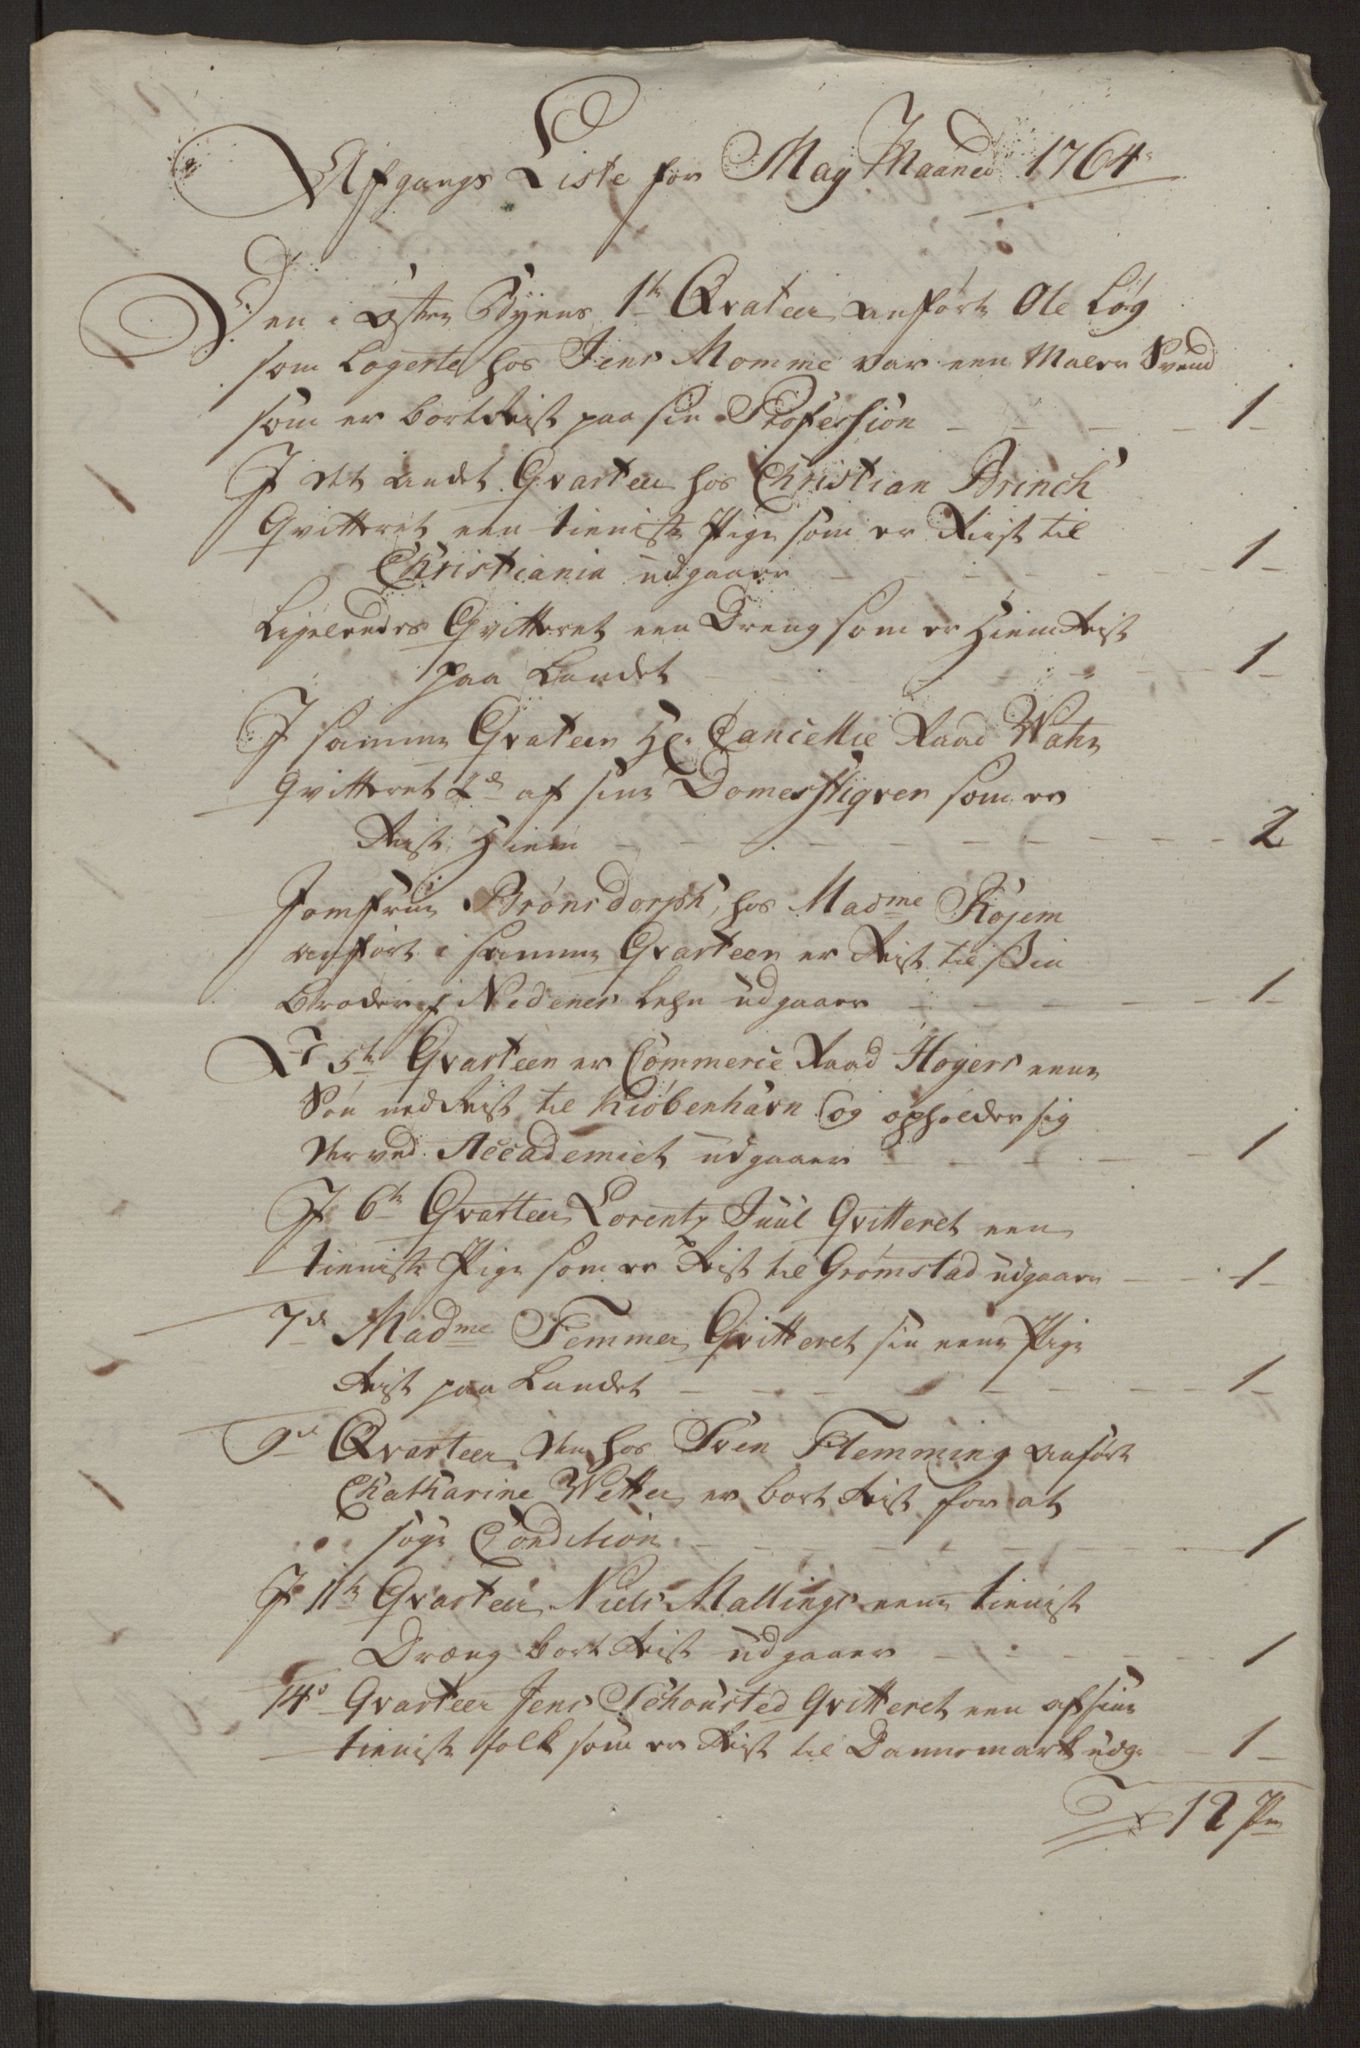 Afgangs Liste for May Maaned 1764
Den i østre Byens 1te Qvateer anførte Ole Løg
som Logerte hos Jens Momme var een Maler Svend
som er bortReist paa sin Profession - - - - 1 -
I det andet Qvarteer hos Christian Brinch
Qvitteret een tieniste Pige som er Reist til
Christiania udgaaer - - - - - 1 -
Ligeledes Qvitteret een Dreng som er HiemReist
paa Landet - - - - - 1 -
I samme Qvateer Hr. Cancellie Raad
Qvitteret 2de af sine Domestiqver som er
Reist Hiem - - - - - 2
Jomfrue Brønsdorph, hos Madme Röyem
anført i samme Qvarteer er Reist til sin
Broder i Nedenes Lehn udgaaer - - - - 1 -
I 5te Qvarteer er Commerce Raad Høyers eene
Søn nedReist til Kiøbenhavn og opholder sig
der ved Accademiet udgaaer - - - - 1
I 6te Qvarteer Lorentz Juul Qvitteret een
tieniste Pige som er Reist til Grømstad udgaaer - - 1 -
7de Madme Femmer Qvitteret sin eene Pige
Reist paa Landet - - - - - 1 -
9de Qvarteer den hos Sven Flemming anført
Chatharine Wetter er bort Reist for at
søge Condition - - - - - 1
I 11te Qvarteer Niels Mallings eene tieniste
Dræng bort Reist udgaaer - - - - 1
14de Qvarteer Jens Schousted Qvitteret een af sine
tieniste folk som er Reist til Dannemark udg: - - 1 -
12 Pn